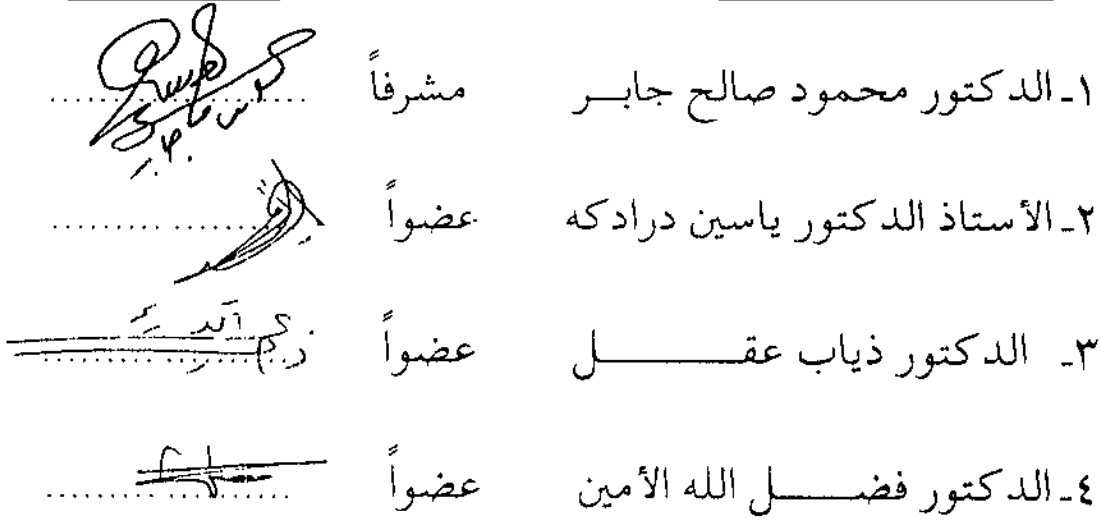 ١ـ الدكتور محمود صالح جابر مشرفاً
٢ـ الأستاذ الدكتور ياسين درادكه عضواً
٣ـ الدكتور ذياب عقل عضواً
٤ـ الدكتور فضل الله الأمين عضواً